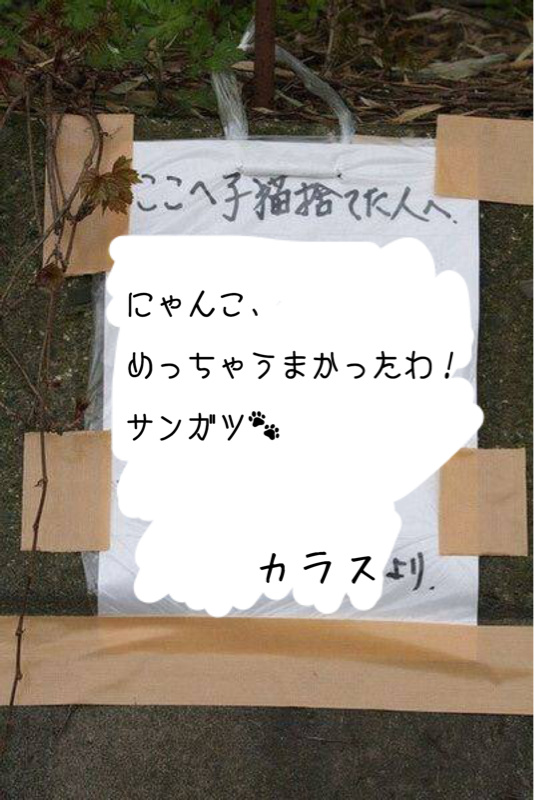 ここへ子猫捨てた人へ.
にゃんこ、
めっちゃうまかったわ！
サンガツ🐾
カラスより.